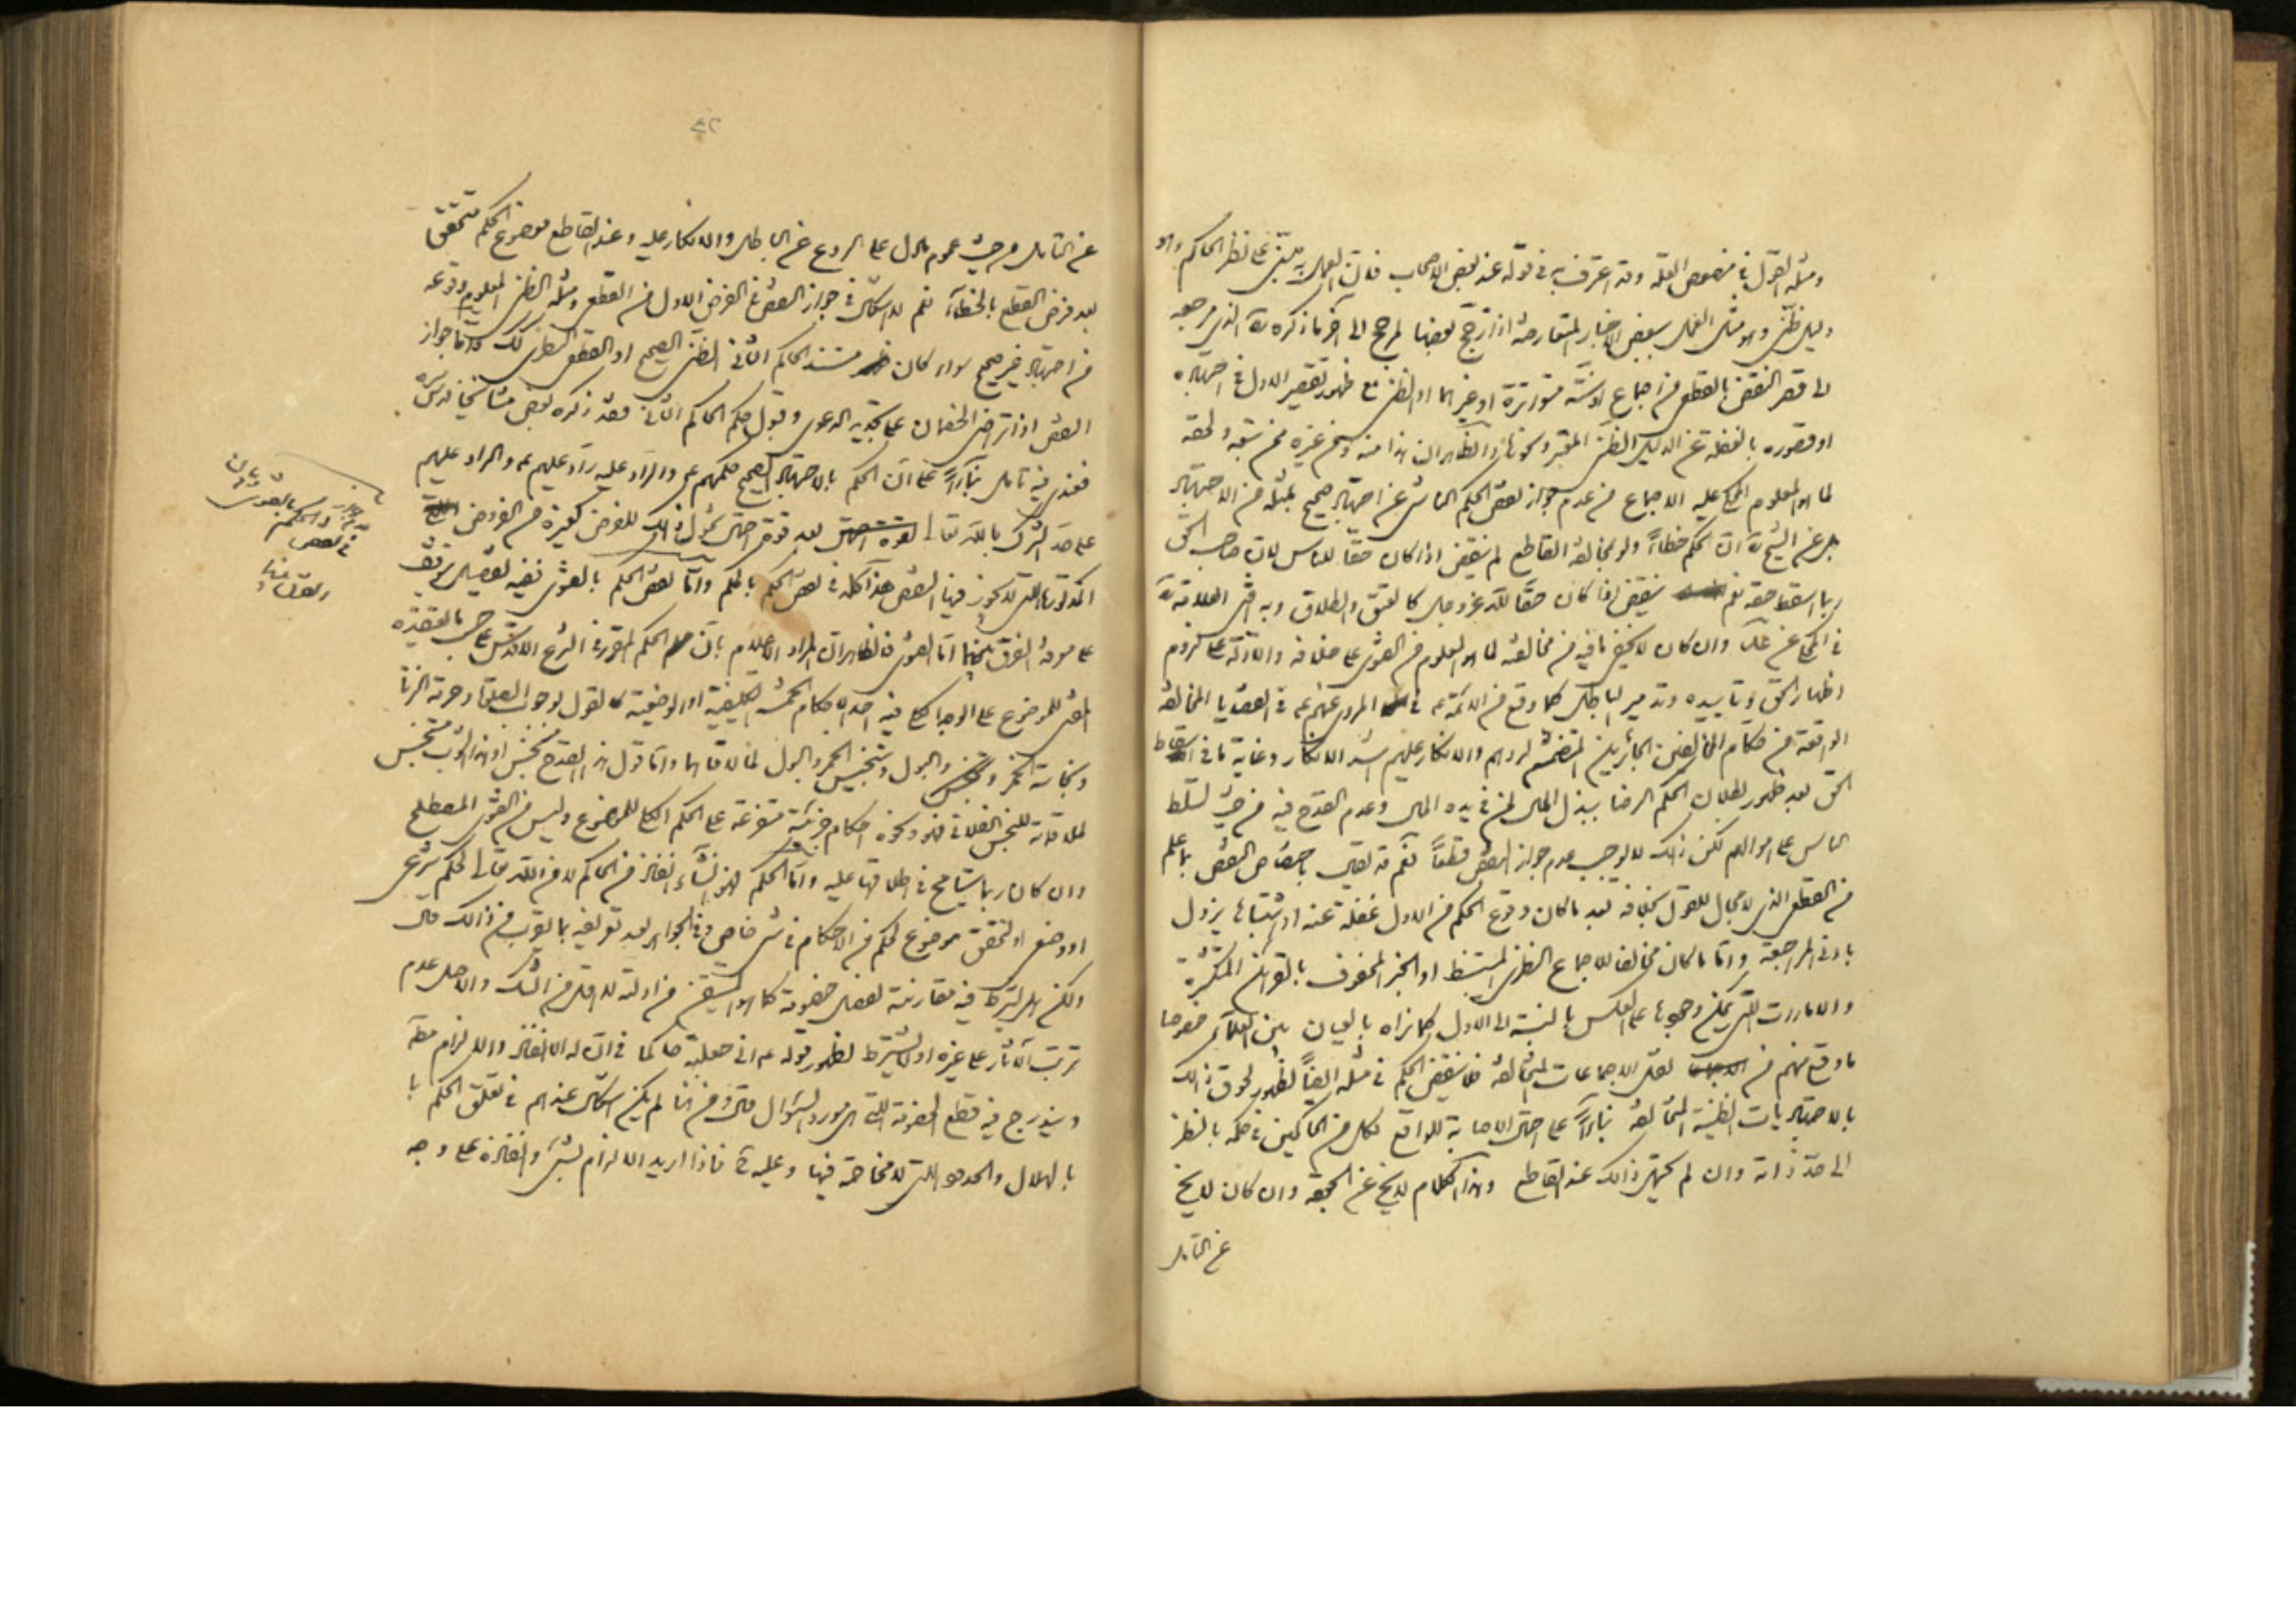 ومثله القول في منصوص العلة وقد اعترف به في قوله عند بعض الاصحاب فان العمل به يبتنى على نظر الحاكم وهو
دليل ظنى وهو مثل العمل ببعض الاخبار المتعارضة اذا ترجح بعضها لمرجح الى آخر ما ذكره ره الذى مرجعه
الى قصر النقض بالقطعى من اجماع او سنة متواترة او غيرهما او الظنى مع ظهور تقصير الاول في اجتهاده
او قصوره بالغفلة عن الدليل الظنى المعتبر ونحوها والظاهر ان هذا منه ومن غيره ممن سبقه ولحقه
لما هو المعلوم المحكى عليه الاجماع من عدم جواز نقض الحكم الناشى عن اجتهاد صحيح بمثله من الاجتهاد
عن الشيخ ره ان الحكم خطاءً ولو بمخالفة القاطع لم ينقض اذا كان حقا للناس لان صاحب الحق
ربما اسقط حقه نعم ينقض اذا كان حقا لله عز وجل كالعتق والطلاق وبه افتى العلامة ره
في المحكى عن وان كان لا يخفى ما فيه من مخالفته لما هو المعلوم من الفتوى على خلافه والادلة على لزوم
اظهار الحق وتاييده وتدمير الباطل كما وقع من الائمة ع في المروى عنهم ع في القضايا المخالفة
الواقعة من حكام المخالفين الجائرين المتضمنة لردهم والانكار عليهم اشد الانكار وغاية ما في اسقاط
الحق بعد ظهور بطلان الحكم الرضا ببذل المال لمن في يده المال وعدم القدح فيه من حيث تسلط
الناس على اموالهم لكن ذلك لا يوجب عدم جواز النقض قطعاً نعم قد يقال باختصاص النقض بما علم
من القطعى الذى لا مجال للقول بخلافه بعد ما كان وقوع الحكم من الاول غفلة عنه او اشتباها يزول
بادنى المراجعة واما ما كان مخالفا للاجماع النظرى المستنبط او الخبر المحفوف بالقرائن المتكثرة
والامارات التى يمكن وجوبها على العكس بالنسبة الى الاول كما نراه بالعيان بين العلماء خصوصا
ما وقع منهم من نقل الاجماعات المتخالفة فلا ينقض الحكم في مثله ايضاً لظهور لحوق ذلك
بالاجتهاديات الظنية المتخالفة بناءاً على احتمال الاصابة للواقع لكل من الحاكمين في حكمه بالنظر
الى حد ذاته وان لم يحتمل ذلك عند القاطع وهذا الكلام لا يخ عن الحجة وان كان لا يخ
عن التامل
عن التامل من حيث عموم ما دل على الردع عن الباطل والانكار عليه وعند القاطع موضوع الحكم متحقق
بعد فرض القطع بالخطاء نعم لا اشكال في جواز النقض في الفرض الاول من القطعى ومثله الظنى المعلوم وقوعه
من اجتهاد غير صحيح سواء كان مستند الحاكم الثانى الظنى الصحيح او القطعى النظرى لك واما جواز
النقض اذا تراضى الخصمان على تجديد الدعوى وقبول حكم الحاكم الثانى فقد ذكره بعض مشايخنا قدس سره
فعندى فيه تامل بناءاً على ان الحكم بالاجتهاد الصحيح حكمهم ع والراد عليه راد عليهم ع والراد عليهم
على حد الشرك بالله تعالى بعد قوة احتمال شمول ذلك للفرض كغيره من الفروض
المذكورة التى لا يجوز فيها النقض هذا كله في نقض الحكم بالحكم واما نقض الحكم بالفتوى ففيه تفصيل يتوقف
على معرفة الفرق بينهما اما الفتوى فالظاهر ان المراد الاعلام بان الحكم المقرر في الشرع الاقدس على حسب ما اعتقده
المفتى للموضوع على الوجه الكلى فيه احد الاحكام الخمسة التكليفية او الوضعية كالقول بوجوب الصلوة وحرمة الزنا
ونجاسة الخمر والبول وتنجيس الخمر والبول لما لاقاهما واما قول هذا القدح نجس او هذا الثوب متنجس
لملاقاته للنجس الفلانى فهو ونحوه احكام جزئية متفرعة على الحكم الكلى للموضوع وليس من الفتوى المصطلح
وان كان ربما يتسامح في اطلاقها عليه واما الحكم فهو انشاء انفاذ من الحاكم لا من الله تعالى لحكم شرعى
او وضعى او لتحقق موضوع لحكم من الاحكام في شىء خاص وفي الجواهر بعد تعريفه بما يقرب من ذلك قال
ولكن هل يشترط فيه مقارنته لفصل خصومة كما هو المتيقن من ادلته لا اقل من الشك والاصل عدم
ترتب الآثار على غيره او لا يشترط لظهور قوله ع انى جعلته حاكما في ان له الانفاذ والالزام مطلقا
ويندرج فيه قطع الخصومة التى هى مورد السؤال ومن هنا لم يكن اشكال عندهم في تعلق الحكم با
بالهلال والحدود التى لا مخاصمة فيها وعليه فاذا اريد الالزام بشىء وانفاذه على وجه
في نقض
الحكم بالفتوى